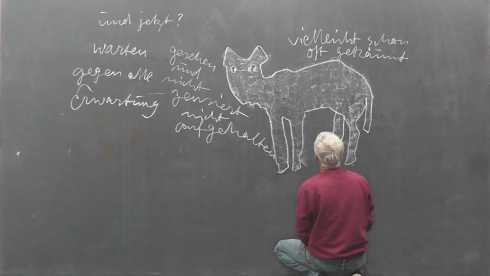 und jetzt?
warten
gegen alle
Erwartung
gesehen
und
nicht
zensiert
nicht
aufgehalten
vielleicht schon
oft geträumt